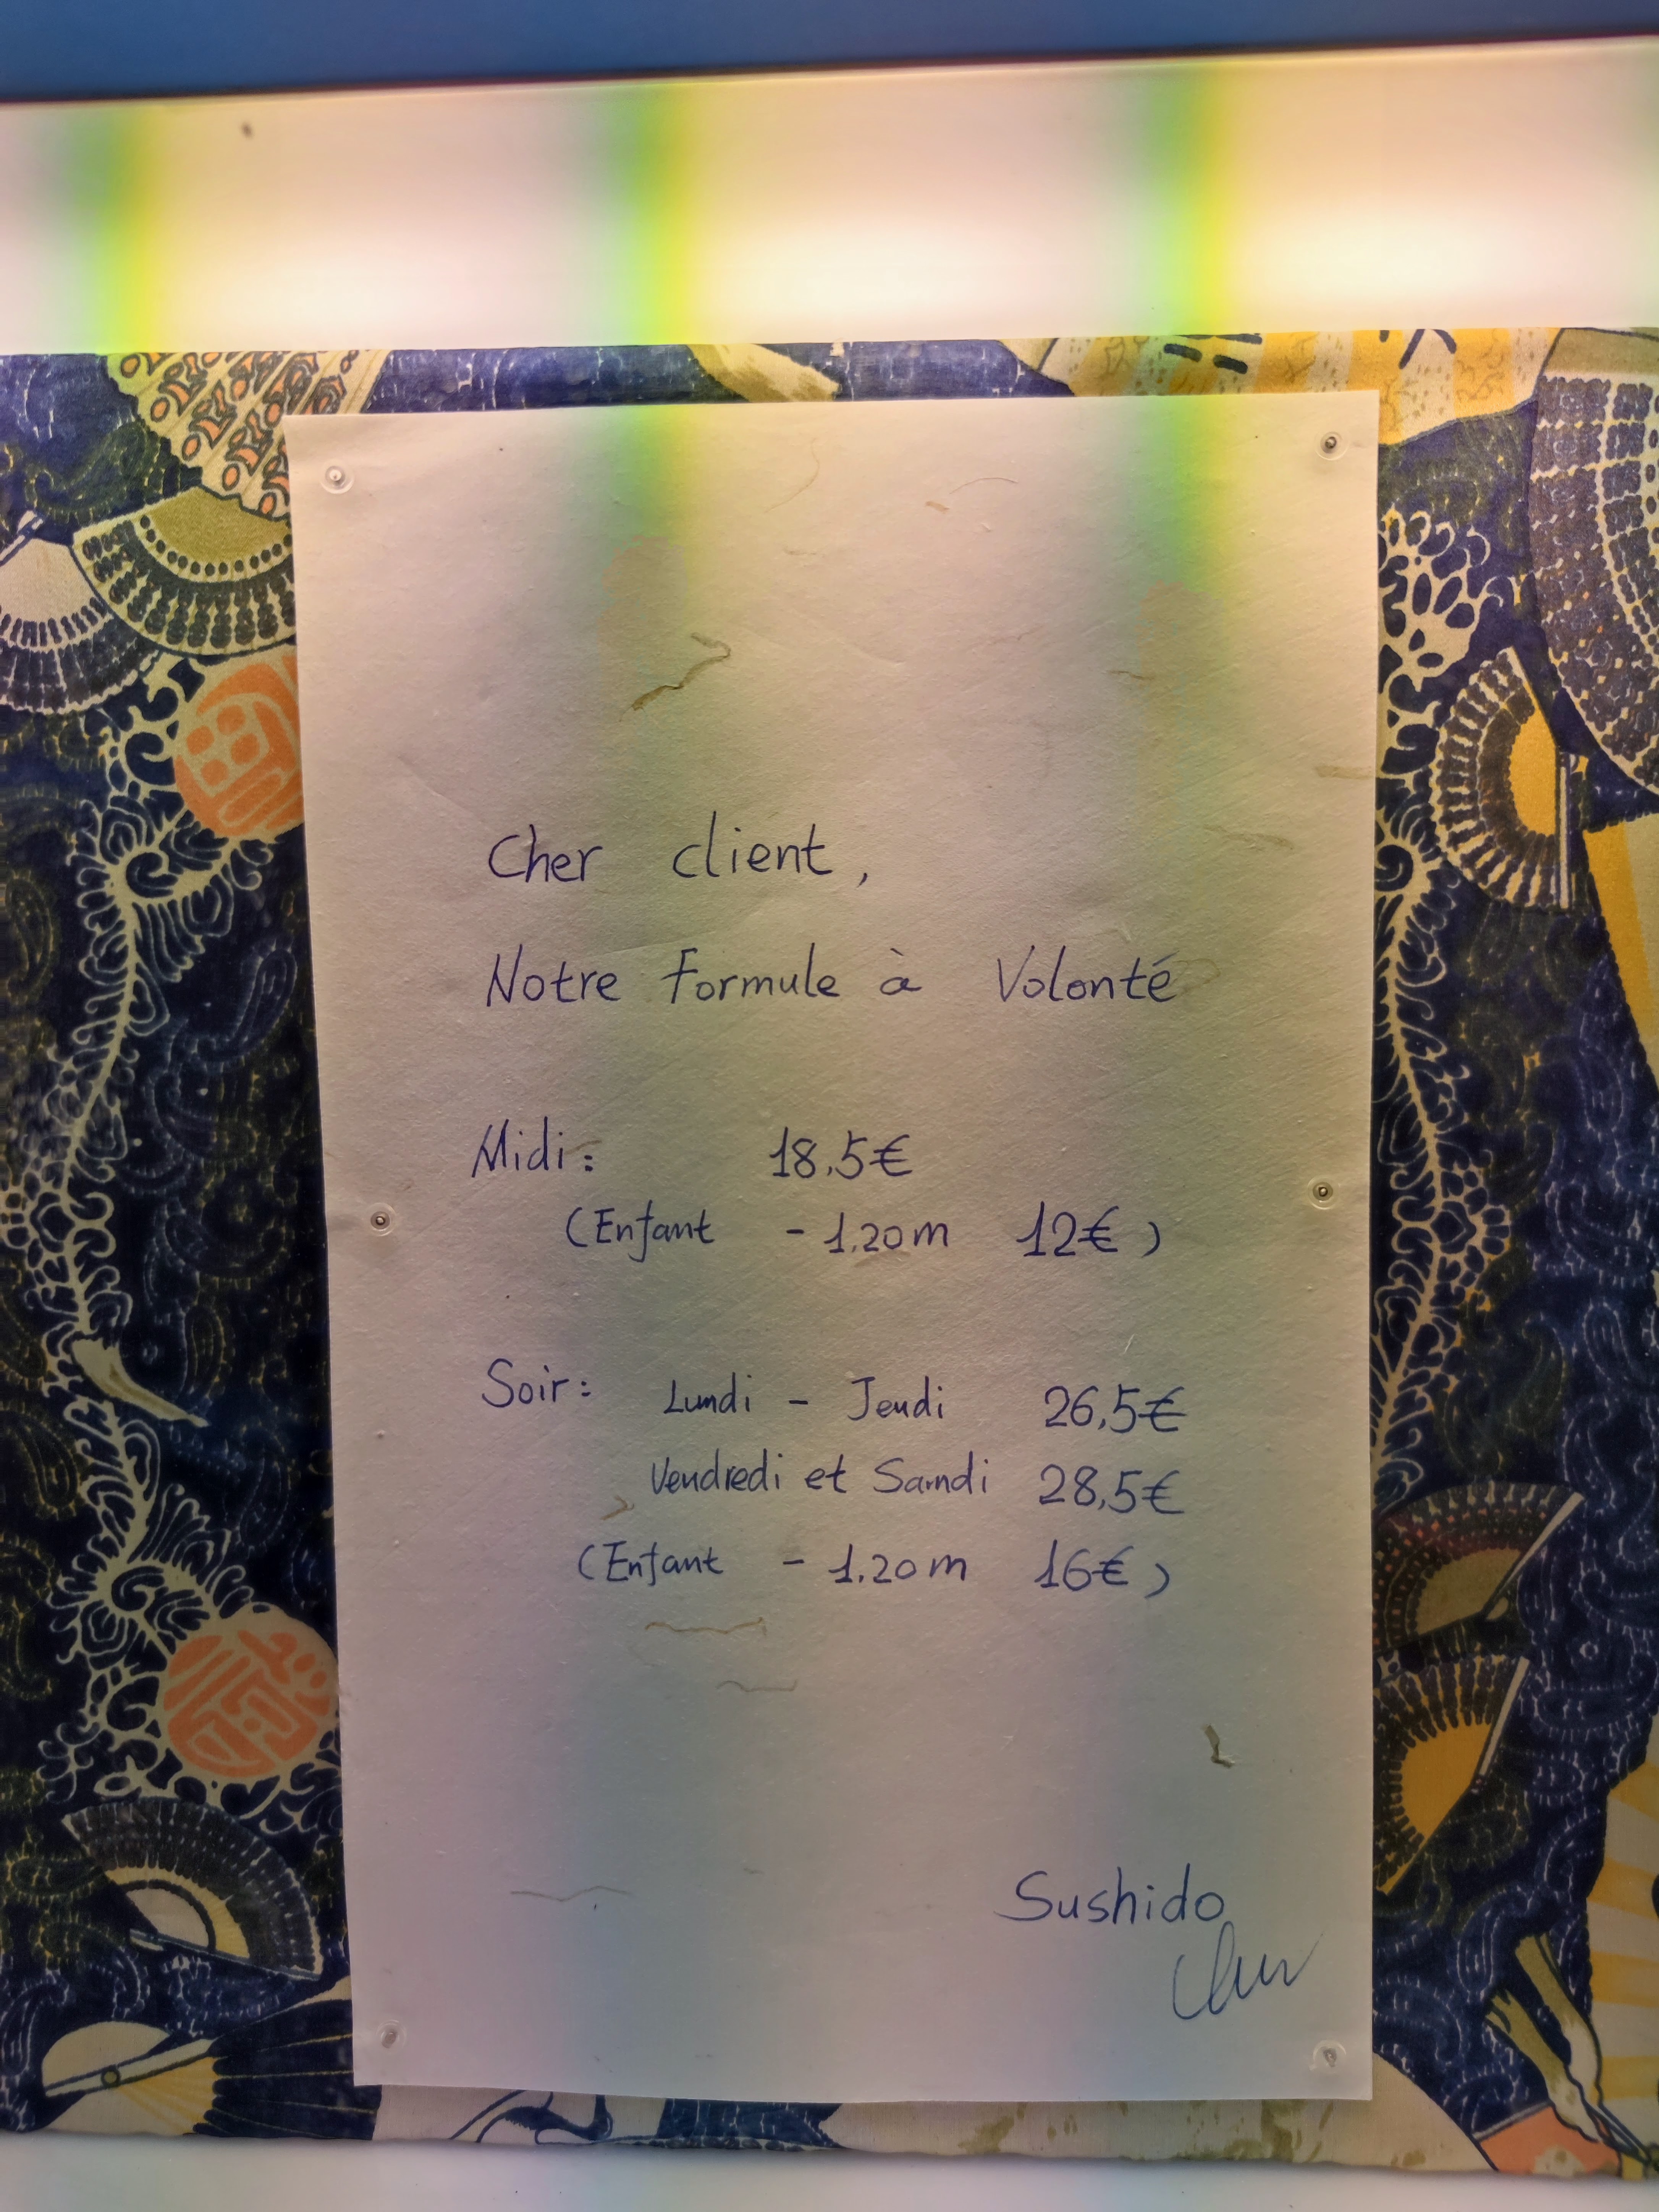 Cher client,
Notre Formule à Volonté
Midi: 18.5€
(Enfant - 1.20m 12€)
Soir: Lundi - Jeudi 26,5€
Vendredi et Samdi 28,5€
(Enfant - 1.20m 16€)
Sushido